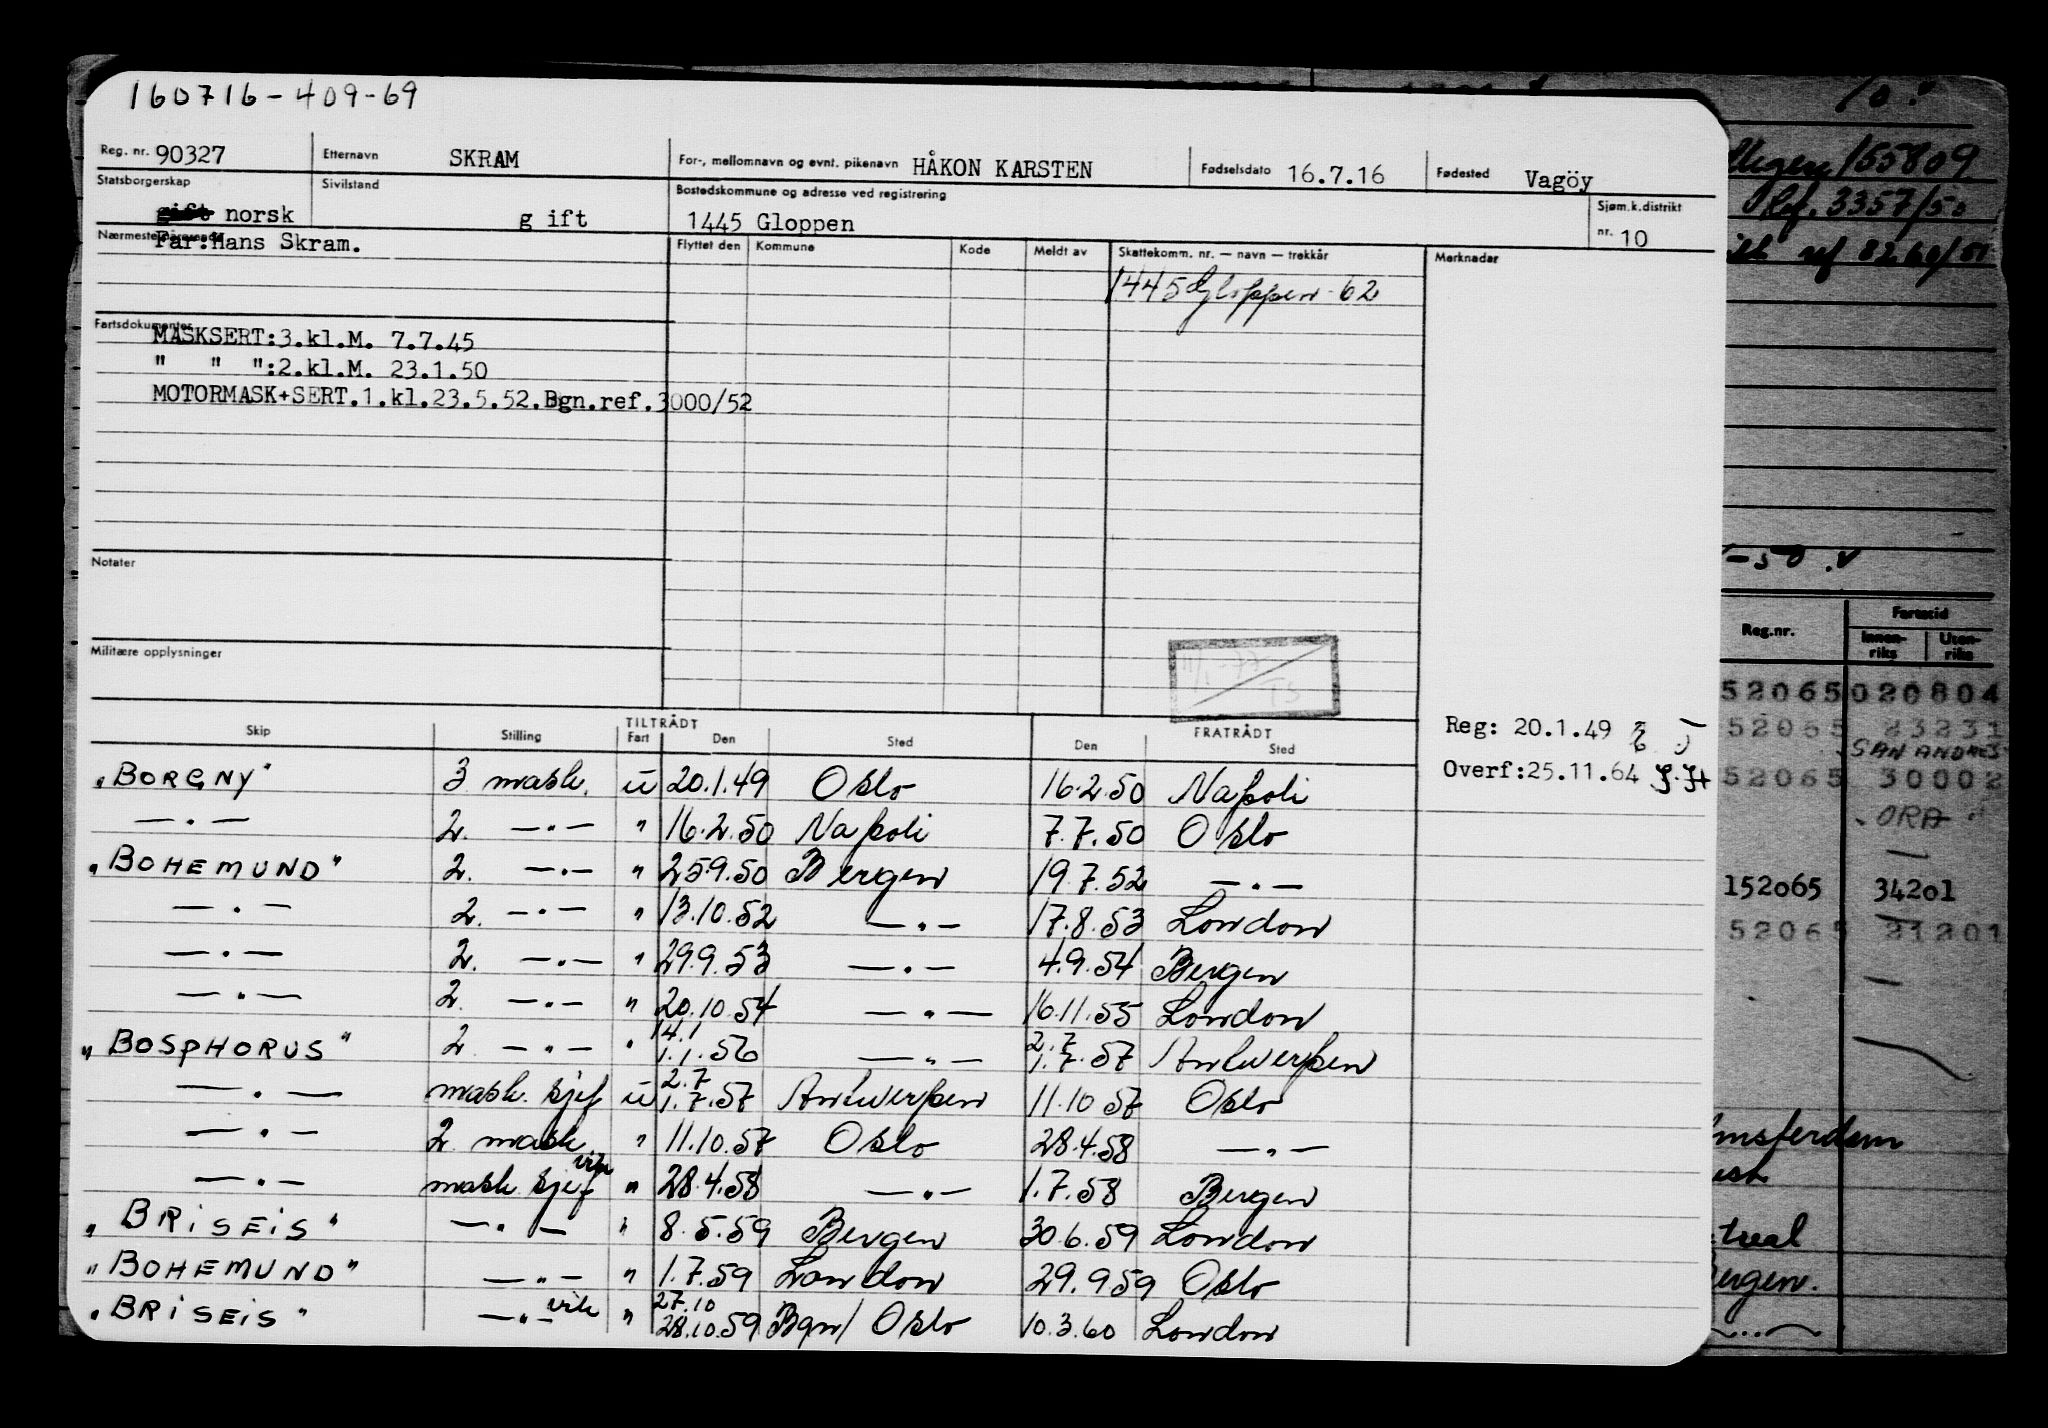 160716-409-69
Reg. nr. 90327 Etternavn SKRAM For-, mellomnavn og evnt. pikenavn HÅKON KARSTEN Fødselsdato 16.7.16 Fødested Vagöy
Statsborgerskap norsk Sivilstand g ift Bostedskommune og adresse ved registrering 1445 Gloppen Sjøm.k.distrikt nr. 10
Nærmeste pårørende Far:Hans Skram. Flyttet den Kommune Kode Meldt av Skattekomm. nr. — navn — trekkår Merknader
1445 Gloppen - 62
Fartsdokumenter
MASKSERT:3.kl.M. 7.7.45
" " ":2.kl.M. 23.1.50
MOTORMASK+SERT.1.kl.23.5.52.Bgn.ref.3000/52
Notater
Militære opplysninger
Reg: 20.1.49
Overf:25.11.64
TILTRÅDT FRATRÅDT
Skip Stilling Fart Den Sted Den Sted
"BORGNY" 3 mask. u 20.1.49 Oslo 16.2.50 Napoli
—"— 2. —"— " 16.2.50 Napoli 7.7.50 Oslo
"BOHEMUND" 2. —"— " 25.9.50 Bergen 19.7.52 —"—
—"— 2. —"— " 13.10.52 —"— 17.8.53 London
—"— 2. —"— " 29.9.53 —"— 4.9.54 Bergen
—"— 2. —"— " 20.10.54 —"— 16.11.55 London
"BOSPHORUS" 2 —"— " 14.1 1.1.56 —"— 2.7 1.7.57 Antwerpen
—"— mask. sjef u 2.7 1.7.57 Antwerpen 11.10.57 Oslo
—"— 2. mask " 11.10.57 Oslo 28.4.58 —"—
—"— mask. sjef vik " 28.4.58 —"— 1.7.58 Bergen
"BRISEIS" —"— " 8.5.59 Bergen 30.6.59 London
"BOHEMUND" —"— " 1.7.59 London 29.9.59 Oslo
"BRISEIS" —"— vik " 27.10 28.10.59 Bgn/ Oslo 10.3.60 London
155809
Ref. 3357/50
8260/51
-50
Reg.nr. Fartstid
Innen-riks Uten-riks
52065 020804
52065 23231
SAN ANDRES
52065 30002
ORA
152065 34201
52065 21201